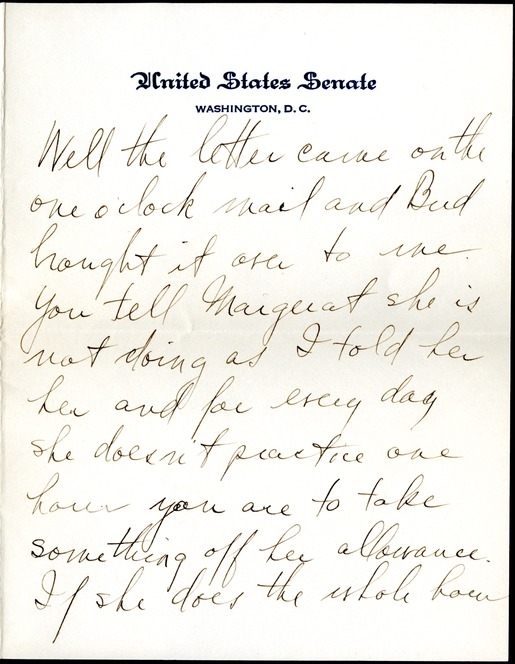 United States Senate
WASHINGTON, D. C.
Well the letter came on the
one o'clock mail and Bud
brought it over to me.
You tell Margerat she is
not doing as I told her
her and for every day
she doesn't practice one
hour you are to take
something off her allowance.
If she does the whole hour